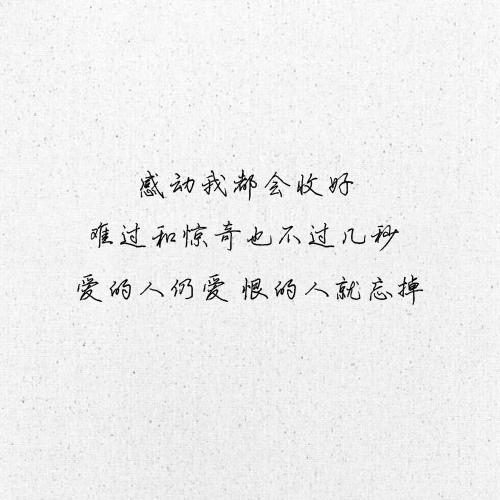 感动我都会收好
难过和惊奇也不过几秒
爱的人仍爱 恨的人就忘掉